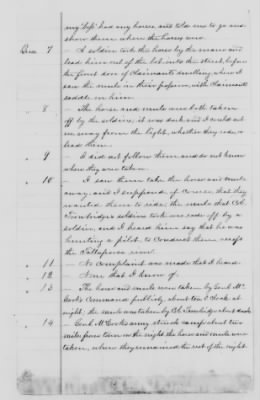 my Dep' had my horses and told me to go and
show them where the horses were.
Ques 7 — A soldier took the horse by the mane and
lead him out of the lot into the street, before
the front door of Claimants dwelling where I
saw the mule in their possession, with Claimants
saddle on him.
8 — The horse and mule were both taken
off by the soldiers, it was dark and I could not
see, away from the light, whether they rode or
lead them.
" 9 — I did not follow them, and do not know
where they were taken.
" 10 — I saw them take the horse and mule
away, and I supposed of course, that they
wanted them to ride. the mule that Col.
Trowbridge's soldiers took was rode off by a
soldier, and I heard him say that he was
hunting a pilot, to conduct them across
the Tallapoosa river.
" 11 — No complaint was made that I heard.
" 12 — None that I know of.
" 13 — The horse and mule were taken by Genl Mc
Cooks Command publicly, about ten O'clock at
night, the mule was taken by Col Trowbridge about dusk
" 14 — Genl McCooks army struck camp about two
miles from town on the night the horse and mule were
taken, where they remained the rest of the night.